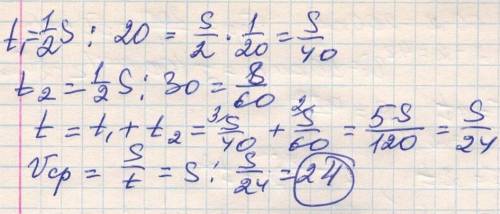 t₁ = 1/2 S : 20 = S/2 · 1/20 = S/40
t₂ = 1/2 S : 30 = S/60
t = t₁ + t₂ = ³S/40 + ²S/60 = 5S/120 = S/24
Vср = S/t = S : S/24 = 24